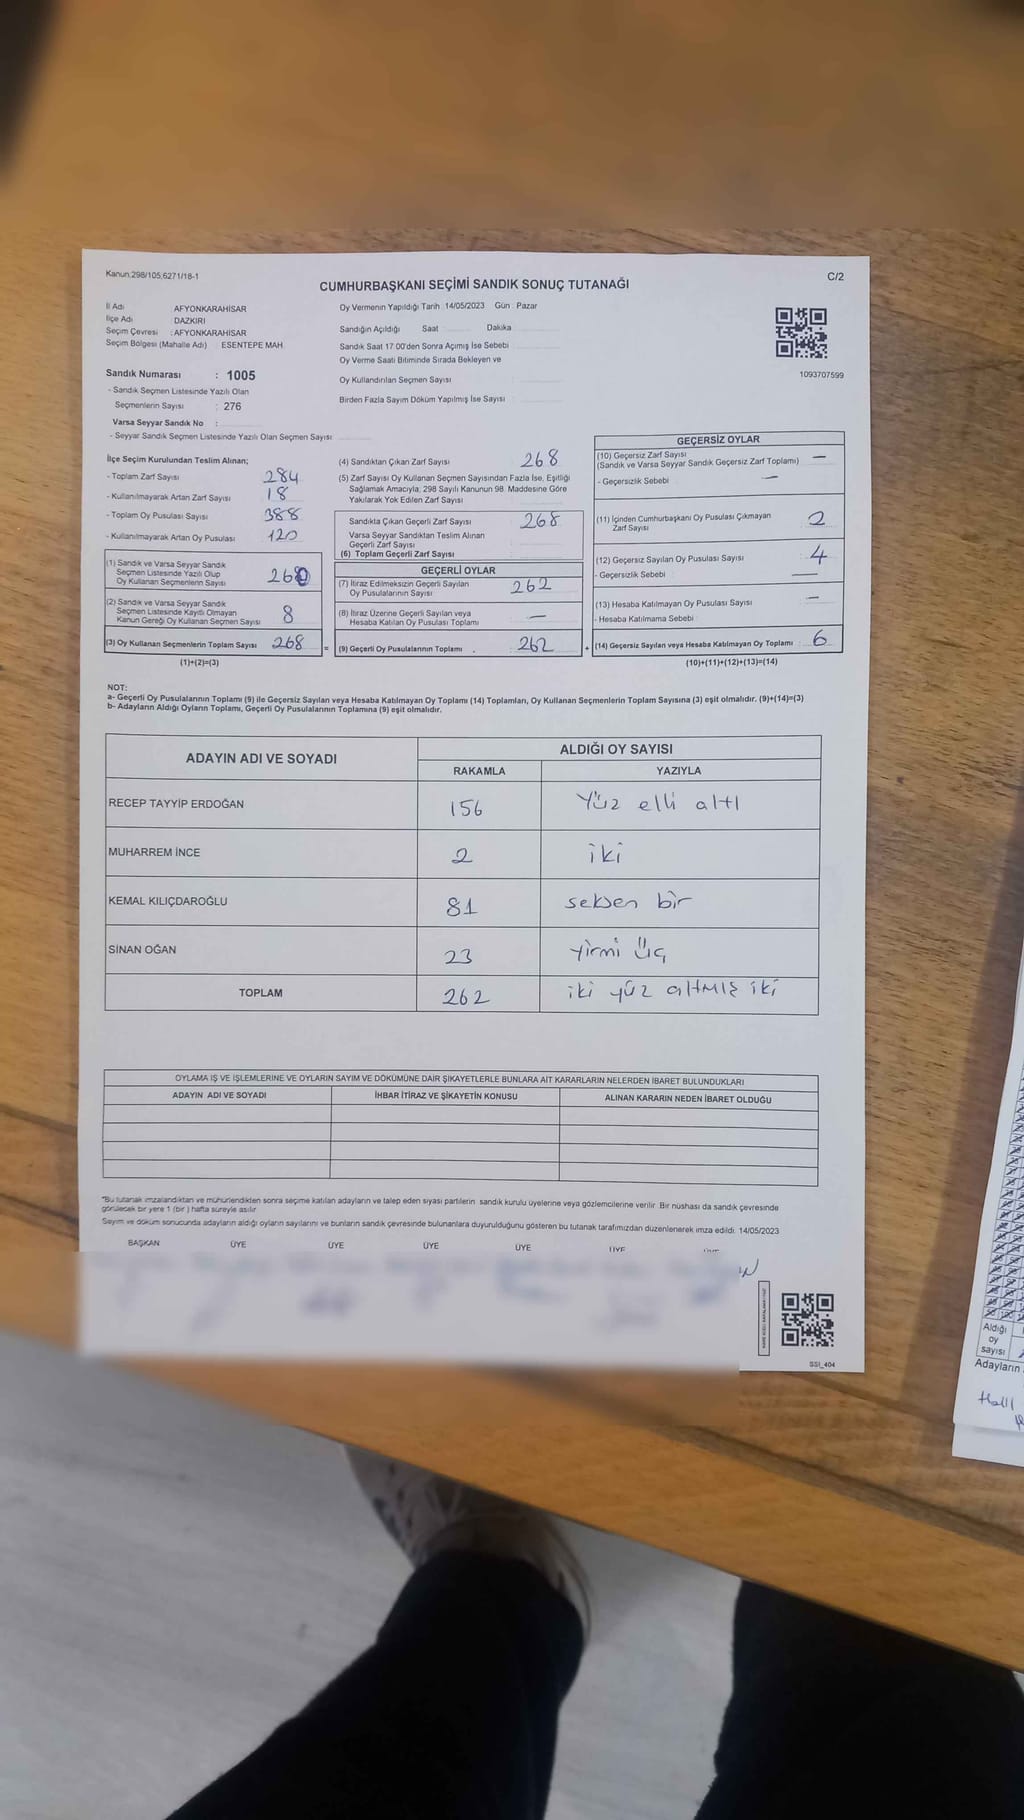 Kanun:298/105,6271/18-1
C/2
CUMHURBAŞKANI SEÇİMİ SANDIK SONUÇ TUTANAĞI
İl Adı AFYONKARAHİSAR
İlçe Adı DAZKIRI
Seçim Çevresi : AFYONKARAHİSAR
Seçim Bölgesi (Mahalle Adı) ESENTEPE MAH.
Oy Vermenin Yapıldığı Tarih :14/05/2023 Gün : Pazar
Sandığın Açıldığı Saat Dakika
Sandık Saat 17:00'den Sonra Açımış İse Sebebi
Oy Verme Saati Bitiminde Sırada Bekleyen ve
Oy Kullandırılan Seçmen Sayısı :
Birden Fazla Sayım Döküm Yapılmış İse Sayısı :
1093707599
Sandık Numarası : 1005
- Sandık Seçmen Listesinde Yazılı Olan
Seçmenlerin Sayısı : 276
Varsa Seyyar Sandık No :
- Seyyar Sandık Seçmen Listesinde Yazılı Olan Seçmen Sayısı
İlçe Seçim Kurulundan Teslim Alınan;
- Toplam Zarf Sayısı 284
- Kullanılmayarak Artan Zarf Sayısı 18
- Toplam Oy Pusulası Sayısı 388
- Kullanılmayarak Artan Oy Pusulası 120
(1) Sandık ve Varsa Seyyar Sandık
Seçmen Listesinde Yazılı Olup
Oy Kullanan Seçmenlerin Sayısı 260
(2) Sandık ve Varsa Seyyar Sandık
Seçmen Listesinde Kayıtlı Olmayan
Kanun Gereği Oy Kullanan Seçmen Sayısı 8
(3) Oy Kullanan Seçmenlerin Toplam Sayısı 268
(1)+(2)=(3)
(4) Sandıktan Çıkan Zarf Sayısı 268
(5) Zarf Sayısı Oy Kullanan Seçmen Sayısından Fazla İse, Eşitliği
Sağlamak Amacıyla; 298 Sayılı Kanunun 98. Maddesine Göre
Yakılarak Yok Edilen Zarf Sayısı
Sandıkta Çıkan Geçerli Zarf Sayısı 268
Varsa Seyyar Sandıktan Teslim Alınan
Geçerli Zarf Sayısı
(6) Toplam Geçerli Zarf Sayısı
GEÇERLİ OYLAR
(7) İtiraz Edilmeksizin Geçerli Sayılan
Oy Pusulalarının Sayısı 262
(8) İtiraz Üzerine Geçerli Sayılan veya
Hesaba Katılan Oy Pusulası Toplamı —
=
(9) Geçerli Oy Pusulalarının Toplamı 262
+
GEÇERSİZ OYLAR
(10) Geçersiz Zarf Sayısı
(Sandık ve Varsa Seyyar Sandık Geçersiz Zarf Toplamı) —
- Geçersizlik Sebebi —
(11) İçinden Cumhurbaşkanı Oy Pusulası Çıkmayan
Zarf Sayısı 2
(12) Geçersiz Sayılan Oy Pusulası Sayısı 4
- Geçersizlik Sebebi —
(13) Hesaba Katılmayan Oy Pusulası Sayısı —
- Hesaba Katılmama Sebebi
(14) Geçersiz Sayılan veya Hesaba Katılmayan Oy Toplamı 6
(10)+(11)+(12)+(13)=(14)
NOT:
a- Geçerli Oy Pusulalarının Toplamı (9) ile Geçersiz Sayılan veya Hesaba Katılmayan Oy Toplamı (14) Toplamları, Oy Kullanan Seçmenlerin Toplam Sayısına (3) eşit olmalıdır. (9)+(14)=(3)
b- Adayların Aldığı Oyların Toplamı, Geçerli Oy Pusulalarının Toplamına (9) eşit olmalıdır.
ADAYIN ADI VE SOYADI
ALDIĞI OY SAYISI
RAKAMLA YAZIYLA
RECEP TAYYİP ERDOĞAN 156 Yüz elli altı
MUHARREM İNCE 2 iki
KEMAL KILIÇDAROĞLU 81 seksen bir
SİNAN OĞAN 23 yirmi üç
TOPLAM 262 iki yüz altmış iki
OYLAMA İŞ VE İŞLEMLERİNE VE OYLARIN SAYIM VE DÖKÜMÜNE DAİR ŞİKAYETLERLE BUNLARA AİT KARARLARIN NELERDEN İBARET BULUNDUKLARI
ADAYIN ADI VE SOYADI İHBAR İTİRAZ VE ŞİKAYETİN KONUSU ALINAN KARARIN NEDEN İBARET OLDUĞU
*Bu tutanak imzalandıktan ve mühürlendikten sonra seçime katılan adayların ve talep eden siyasi partilerin sandık kurulu üyelerine veya gözlemcilerine verilir. Bir nüshası da sandık çevresinde
görülecek bir yere 1 (bir) hafta süreyle asılır
Sayım ve döküm sonucunda adayların aldığı oyların sayılarını ve bunların sandık çevresinde bulunanlara duyurulduğunu gösteren bu tutanak tarafımızdan düzenlenerek imza edildi. 14/05/2023
BAŞKAN ÜYE ÜYE ÜYE ÜYE ÜYE ÜYE
SSI_404
Aldığı
oy
sayısı
Adayların
Halil